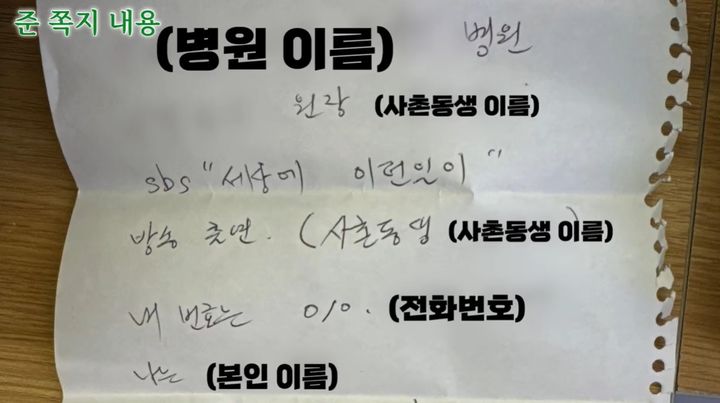 준 쪽지 내용
(병원 이름) 병원
원장 (사촌동생 이름)
sbs "세상에 이런일이"
방송 출연. (사촌동생 (사촌동생 이름)
내 번호는 010. (전화번호)
나는 (본인 이름)